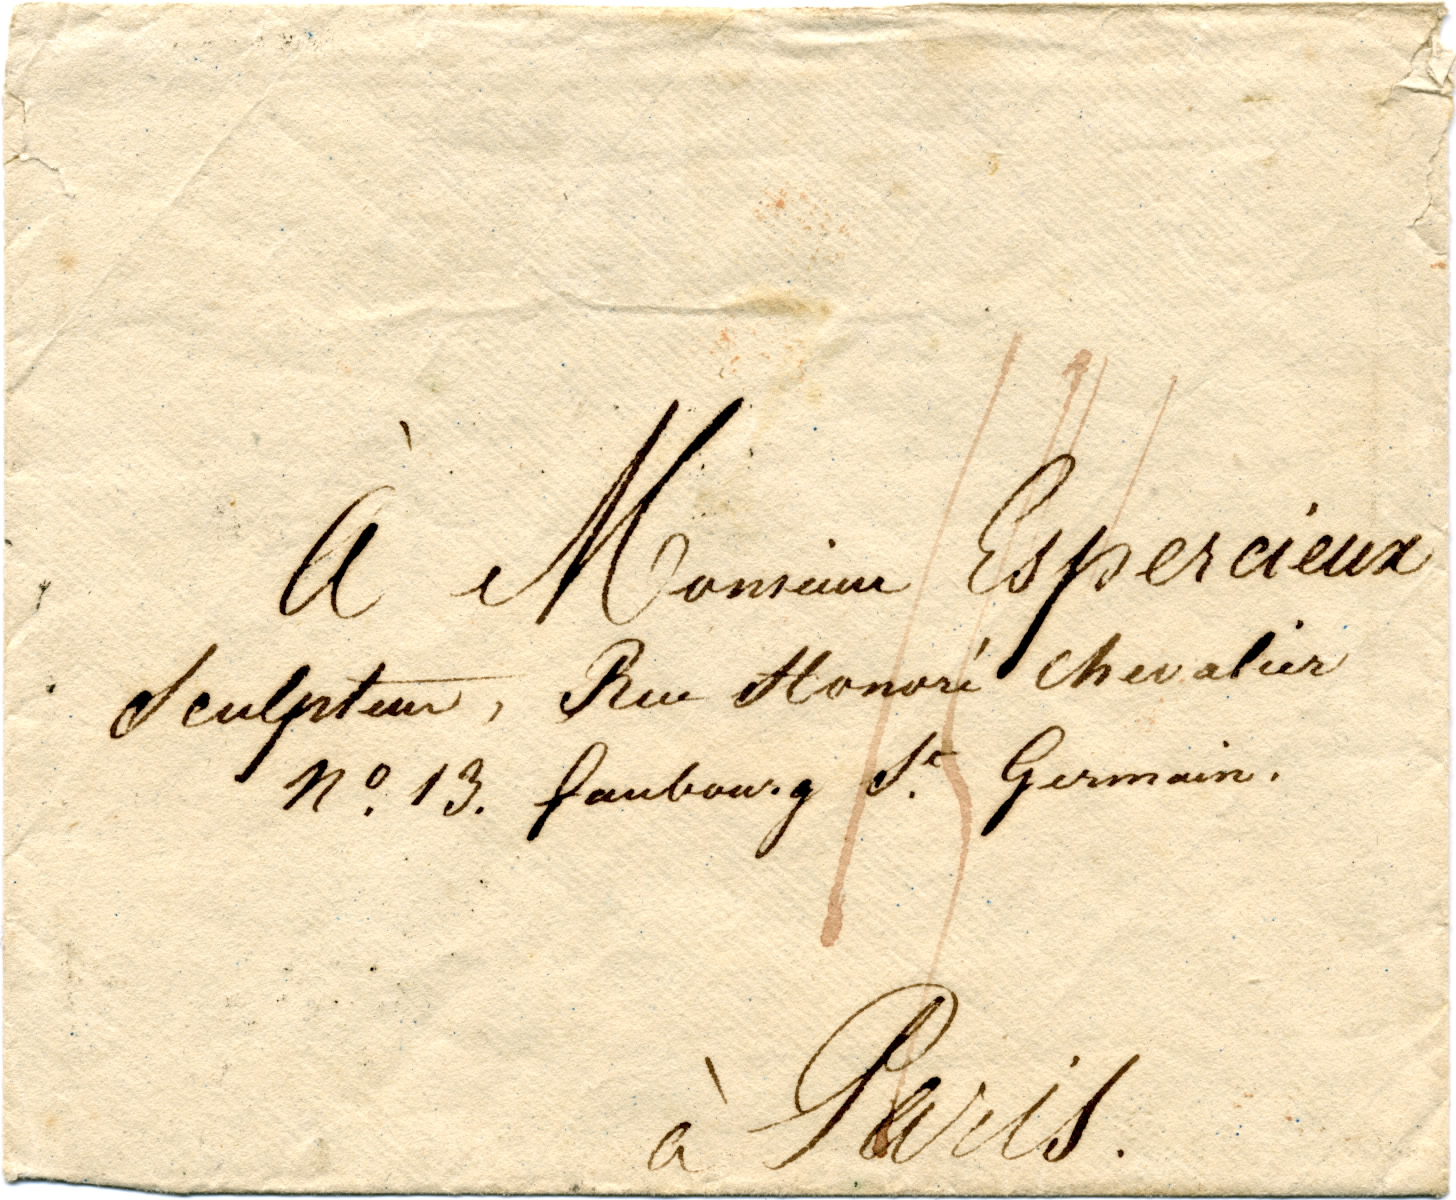 À Monsieur Espercieux
Sculpteur, Rue Honoré Chevalier
N.º 13. faubourg S.t Germain.
à Paris.